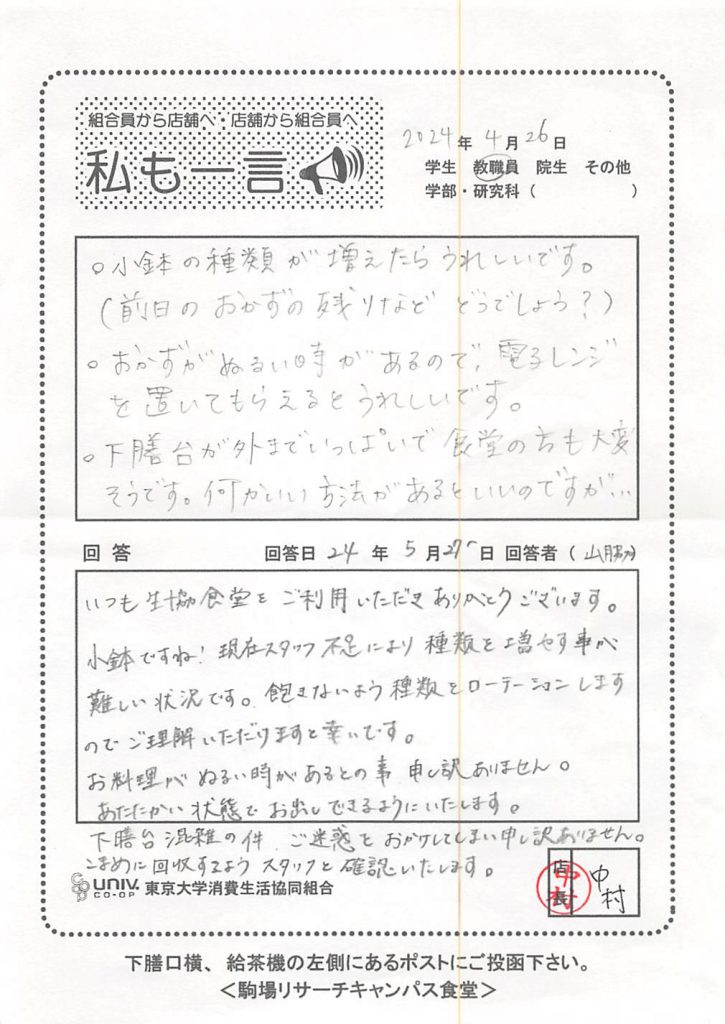 組合員から店舗へ・店舗から組合員へ
私も一言
2024年4月26日
学生 教職員 院生 その他
学部・研究科( )
○小鉢の種類が増えたらうれしいです。
(前日のおかずの残りなど どうでしょう?)
○おかずがぬるい時があるので、電子レンジ
を置いてもらえるとうれしいです。
○下膳台が外までいっぱいで食堂の方も大変
そうです。何かいい方法があるといいのですが…
回答 回答日 24年5月27日 回答者(山勝)
いつも生協食堂をご利用いただきありがとうございます。
小鉢ですね!現在スタッフ不足により種類を増やす事が
難しい状況です。飽きないよう種類をローテーションします
のでご理解いただけますと幸いです。
お料理がぬるい時があるとの事 申し訳ありません。
あたたかい状態でお出しできるようにいたします。
下膳台混雑の件、ご迷惑をおかけしてしまい申し訳ありません。
こまめに回収するようスタッフと確認いたします。
univ. CO-OP 東京大学消費生活協同組合
店長 中村 中村
下膳口横、給茶機の左側にあるポストにご投函下さい。
<駒場リサーチキャンパス食堂>